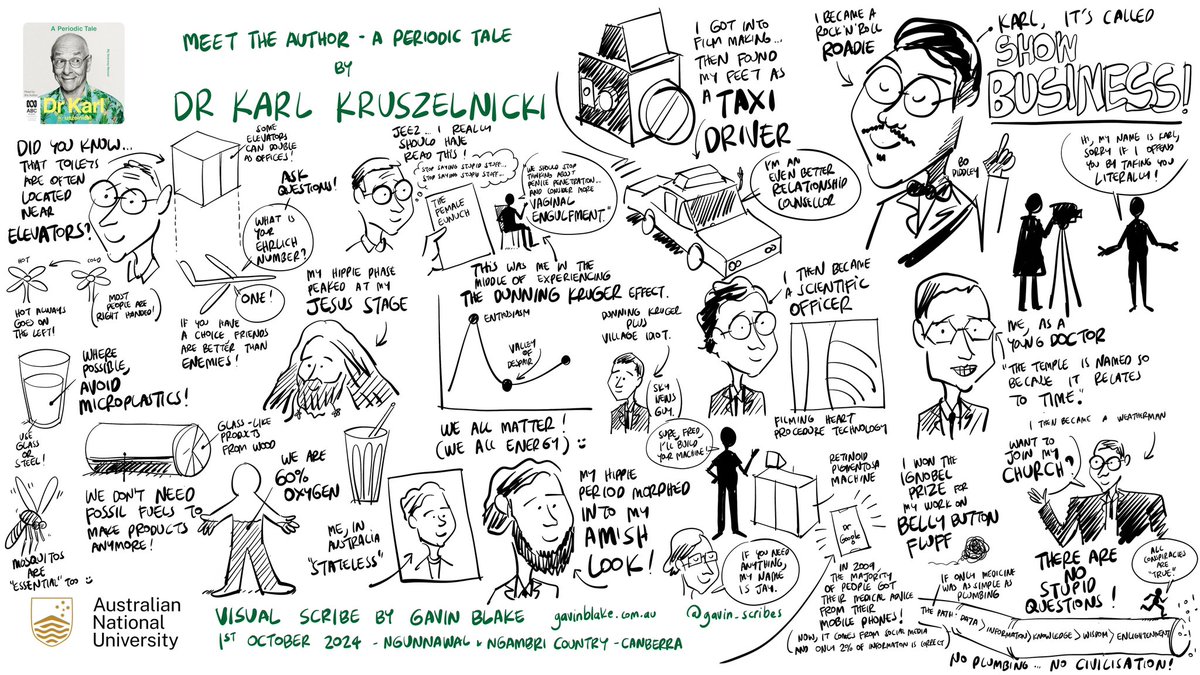 A Periodic Tale
Dr Karl
Kruszelnicki
ABC
MEET THE AUTHOR - A PERIODIC TALE
BY
DR KARL KRUSZELNICKI
DID YOU KNOW...
THAT TOILETS
ARE OFTEN
LOCATED
NEAR
ELEVATORS?
SOME
ELEVATORS
CAN DOUBLE
AS OFFICES!
ASK
QUESTIONS!
WHAT IS
YOUR
EHRLICH
NUMBER?
ONE!
IF YOU HAVE
A CHOICE FRIENDS
ARE BETTER THAN
ENEMIES!
HOT
COLD
HOT ALWAYS
GOES ON
THE LEFT!
(MOST
PEOPLE ARE
RIGHT HANDED!)
WHERE
POSSIBLE,
AVOID
MICROPLASTICS!
USE
GLASS
OR
STEEL!
GLASS-LIKE
PRODUCTS
FROM WOOD
WE DON'T NEED
FOSSIL FUELS TO
MAKE PRODUCTS
ANYMORE!
MOSQUITOS
ARE
"ESSENTIAL" TOO
WE ARE
60%
OXYGEN
JEEZ... I REALLY
SHOULD HAVE
READ THIS!
STOP SAYING STUPID STUFF...
STOP SAYING STUPID STUFF...
THE
FEMALE
EUNUCH
"WE SHOULD STOP
THINKING ABOUT
PENILE PENETRATION...
AND CONSIDER MORE
VAGINAL
ENGULFMENT."
MY HIPPIE PHASE
PEAKED AT MY
JESUS STAGE
THIS WAS ME IN THE
MIDDLE OF EXPERIENCING
THE DUNNING KRUGER EFFECT.
ENTHUSIASM
VALLEY
OF
DESPAIR
DUNNING KRUGER
PLUS
VILLAGE IDIOT.
SKY
NEWS
GUY.
WE ALL MATTER!
(WE ALL ENERGY)
ME, IN
AUSTRALIA
"STATELESS"
MY HIPPIE
PERIOD MORPHED
INTO MY
AMISH
LOOK!
I GOT INTO
FILM MAKING...
THEN FOUND
MY FEET AS
A TAXI
DRIVER
I'M AN
EVEN BETTER
RELATIONSHIP
COUNSELLOR
I BECAME A
ROCK'N'ROLL
ROADIE
KARL, IT'S CALLED
SHOW
BUSINESS!
BO
DIDLEY
HI, MY NAME IS KARL,
SORRY IF I OFFEND
YOU BY TAKING YOU
LITERALLY!
I THEN BECAME
A SCIENTIFIC
OFFICER
FILMING HEART
PROCEDURE TECHNOLOGY
ME, AS A
YOUNG DOCTOR
"THE TEMPLE IS NAMED SO
BECAUSE IT RELATES
TO TIME."
I THEN BECAME A WEATHERMAN
WANT TO
JOIN MY
CHURCH?
SURE, FRED,
I'LL BUILD
YOUR MACHINE!
RETINOID
PIGMENTOSA
MACHINE
IF YOU NEED
ANYTHING,
MY NAME
IS JAY.
Dr
Google
IN 2009,
THE MAJORITY
OF PEOPLE GOT
THEIR MEDICAL ADVICE
FROM THEIR
MOBILE PHONES!
(NOW, IT COMES FROM SOCIAL MEDIA
AND ONLY 2% OF INFORMATION IS CORRECT)
I WON THE
IGNOBEL
PRIZE FOR
MY WORK ON
BELLY BUTTON
FLUFF
THERE ARE
NO
STUPID
QUESTIONS!
ALL
CONSPIRACIES
ARE
"TRUE."
IF ONLY MEDICINE
WAS AS SIMPLE AS
PLUMBING
THE PATH: DATA > INFORMATION > KNOWLEDGE > WISDOM > ENLIGHTENMENT
NO PLUMBING... NO CIVILISATION!
Australian
National
University
VISUAL SCRIBE BY GAVIN BLAKE gavinblake.com.au @gavin_scribes
1ST OCTOBER 2024 - NGUNNAWAL & NGAMBRI COUNTRY - CANBERRA